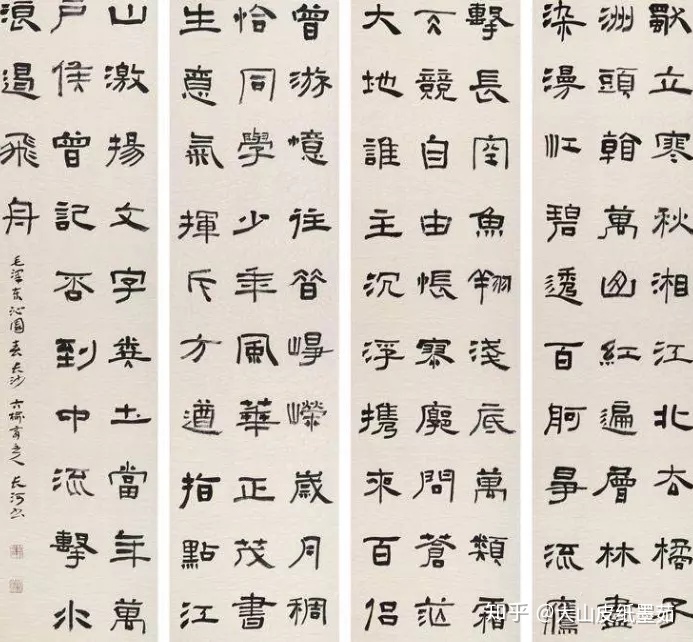 獨立寒秋湘江北去橘子
洲頭看萬山紅遍層林盡
染漫江碧透百舸爭流鷹
擊長空魚翔淺底萬類霜
天競自由悵寥廓問蒼茫
大地誰主沉浮攜來百侶
曾游憶往昔崢嶸歲月稠
恰同學少年風華正茂書
生意氣揮斥方遒指點江
山激揚文字糞土當年萬
戶侯曾記否到中流擊水
浪遏飛舟
毛澤東沁園春長沙 主人長河書
知乎 @大山皮纸墨茹